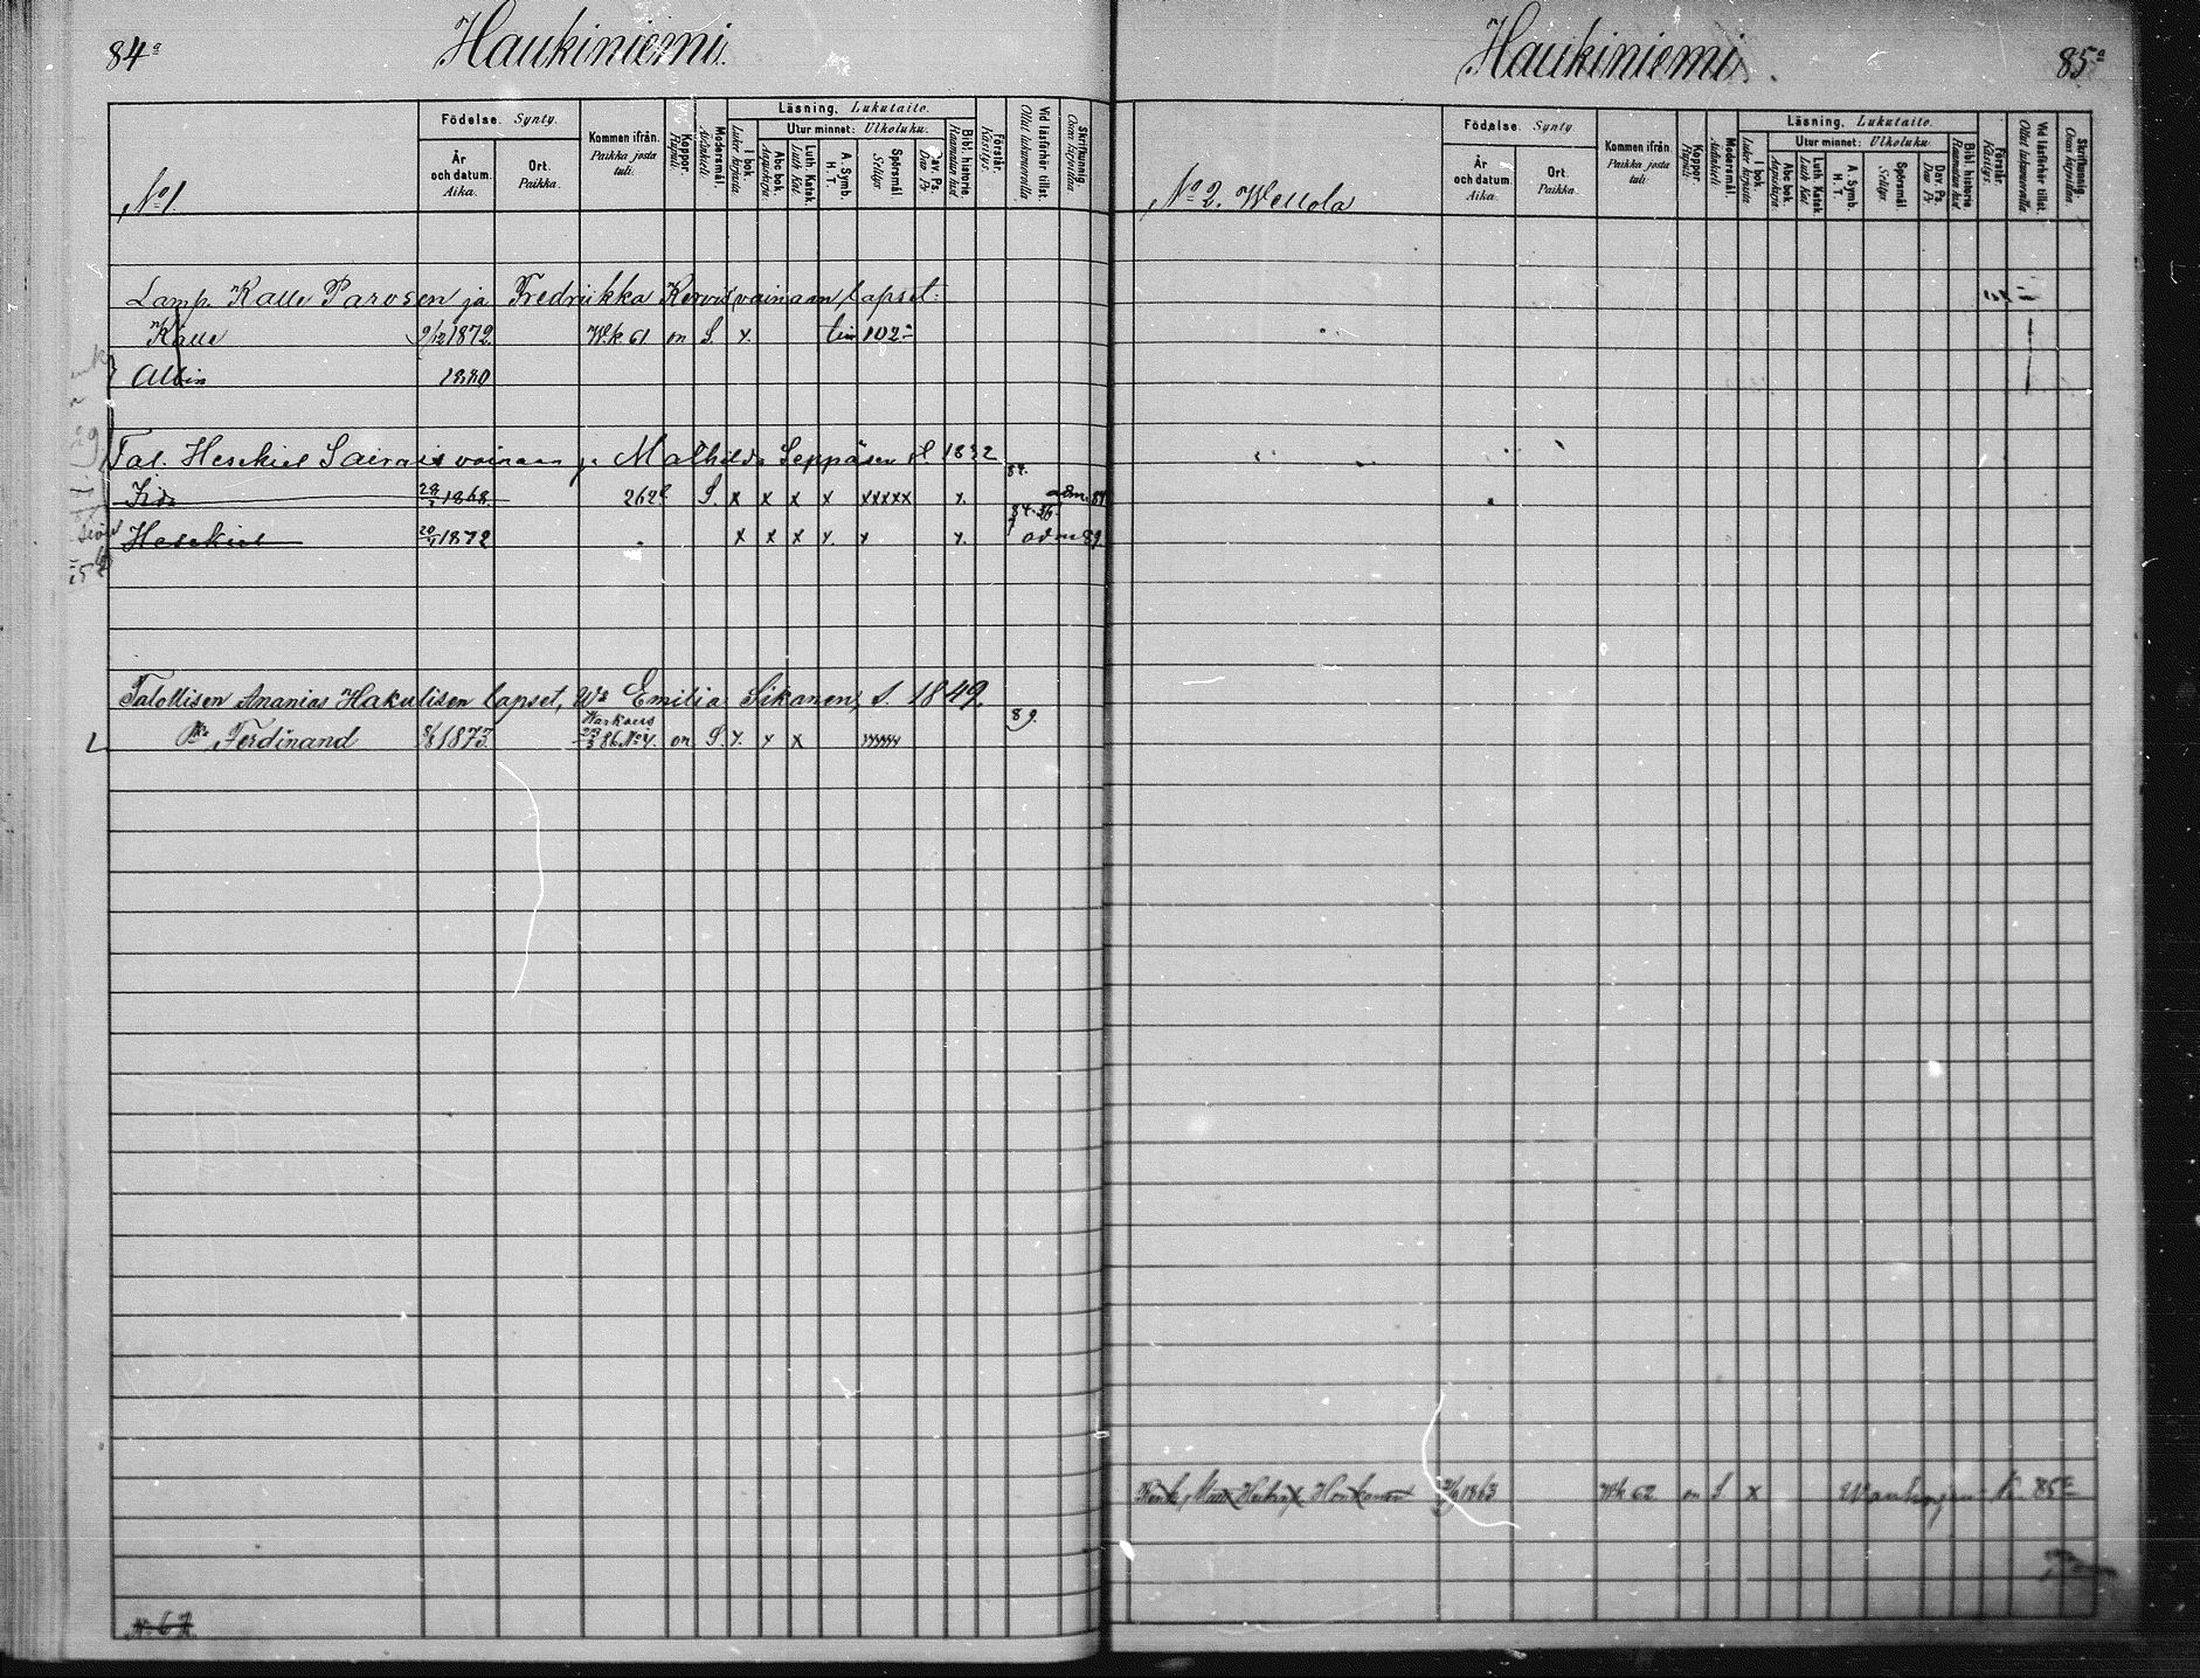 84a
Haukiniemi.
Födelse. Synty.
Kommen ifrån.
Paikka josta tuli.
Koppor.
Rupuli.
Modersmål.
Äidinkieli.
Läsning. Lukutaito.
I bok.
Lukee kirjasta.
Utur minnet: Ulkoluku.
Abc bok.
Aapiskirja.
Luth. Katek.
Luth Kat.
A. Symb.
H. T.
Spörsmål.
Selitys
Dav. Ps.
Daw Ps
Bibl. historie.
Raamatun hist.
Förstår.
Käsitys.
Vid läsförhör tillst.
Ollut lukuwuoroilla
Skrifkunnig.
Osaa kirjoittaa
År och datum.
Aika.
Ort.
Paikka.
No 1.
Lamp. Kalle Parosen ja Fredriikka vainaan lapset:
Kalle 9/12 1872. W.k. 61 on S. x. 102
Albin 1880
Tal. Heskiel vainaan ja Mathilda Seppäsen 1832
84.
1868. 262 S. x x x x xxxxx x. adm. 89
84.86
Heskiel 20/ 1872 x x x x. x x. adm 89.
Talollisen Ananias Hakulisen lapset, Wo Emilia Sikanen, S. 1849.
Warkaus 89.
Ferdinand 1873. 86 No 4. on S. x. x x xxxxxx
No 67.
Haukiniemi.
85a
Födelse. Synty
Kommen ifrån.
Paikka josta tuli.
Koppor.
Rupuli
Modersmål.
Äidinkieli
Läsning. Lukutaito.
I bok.
Lukee kirjasta
Utur minnet: Ulkoluku.
Abc bok.
Aapiskirja.
Luth. Katek
Luth Kat
A. Symb.
H. T.
Spörsmål.
Selitys.
Dav. Ps.
Daw Ps
Bibl historie
Raamatun hist.
Förstår.
Käsitys.
Vid läsförhör tillst.
Ollut lukuwuoroilla
Skrifkunnig.
Osaa kirjoittaa.
År och datum.
Aika.
Ort.
Paikka.
No 2. Wellola
Honkanen 1863 Wk 62 on S. x 85